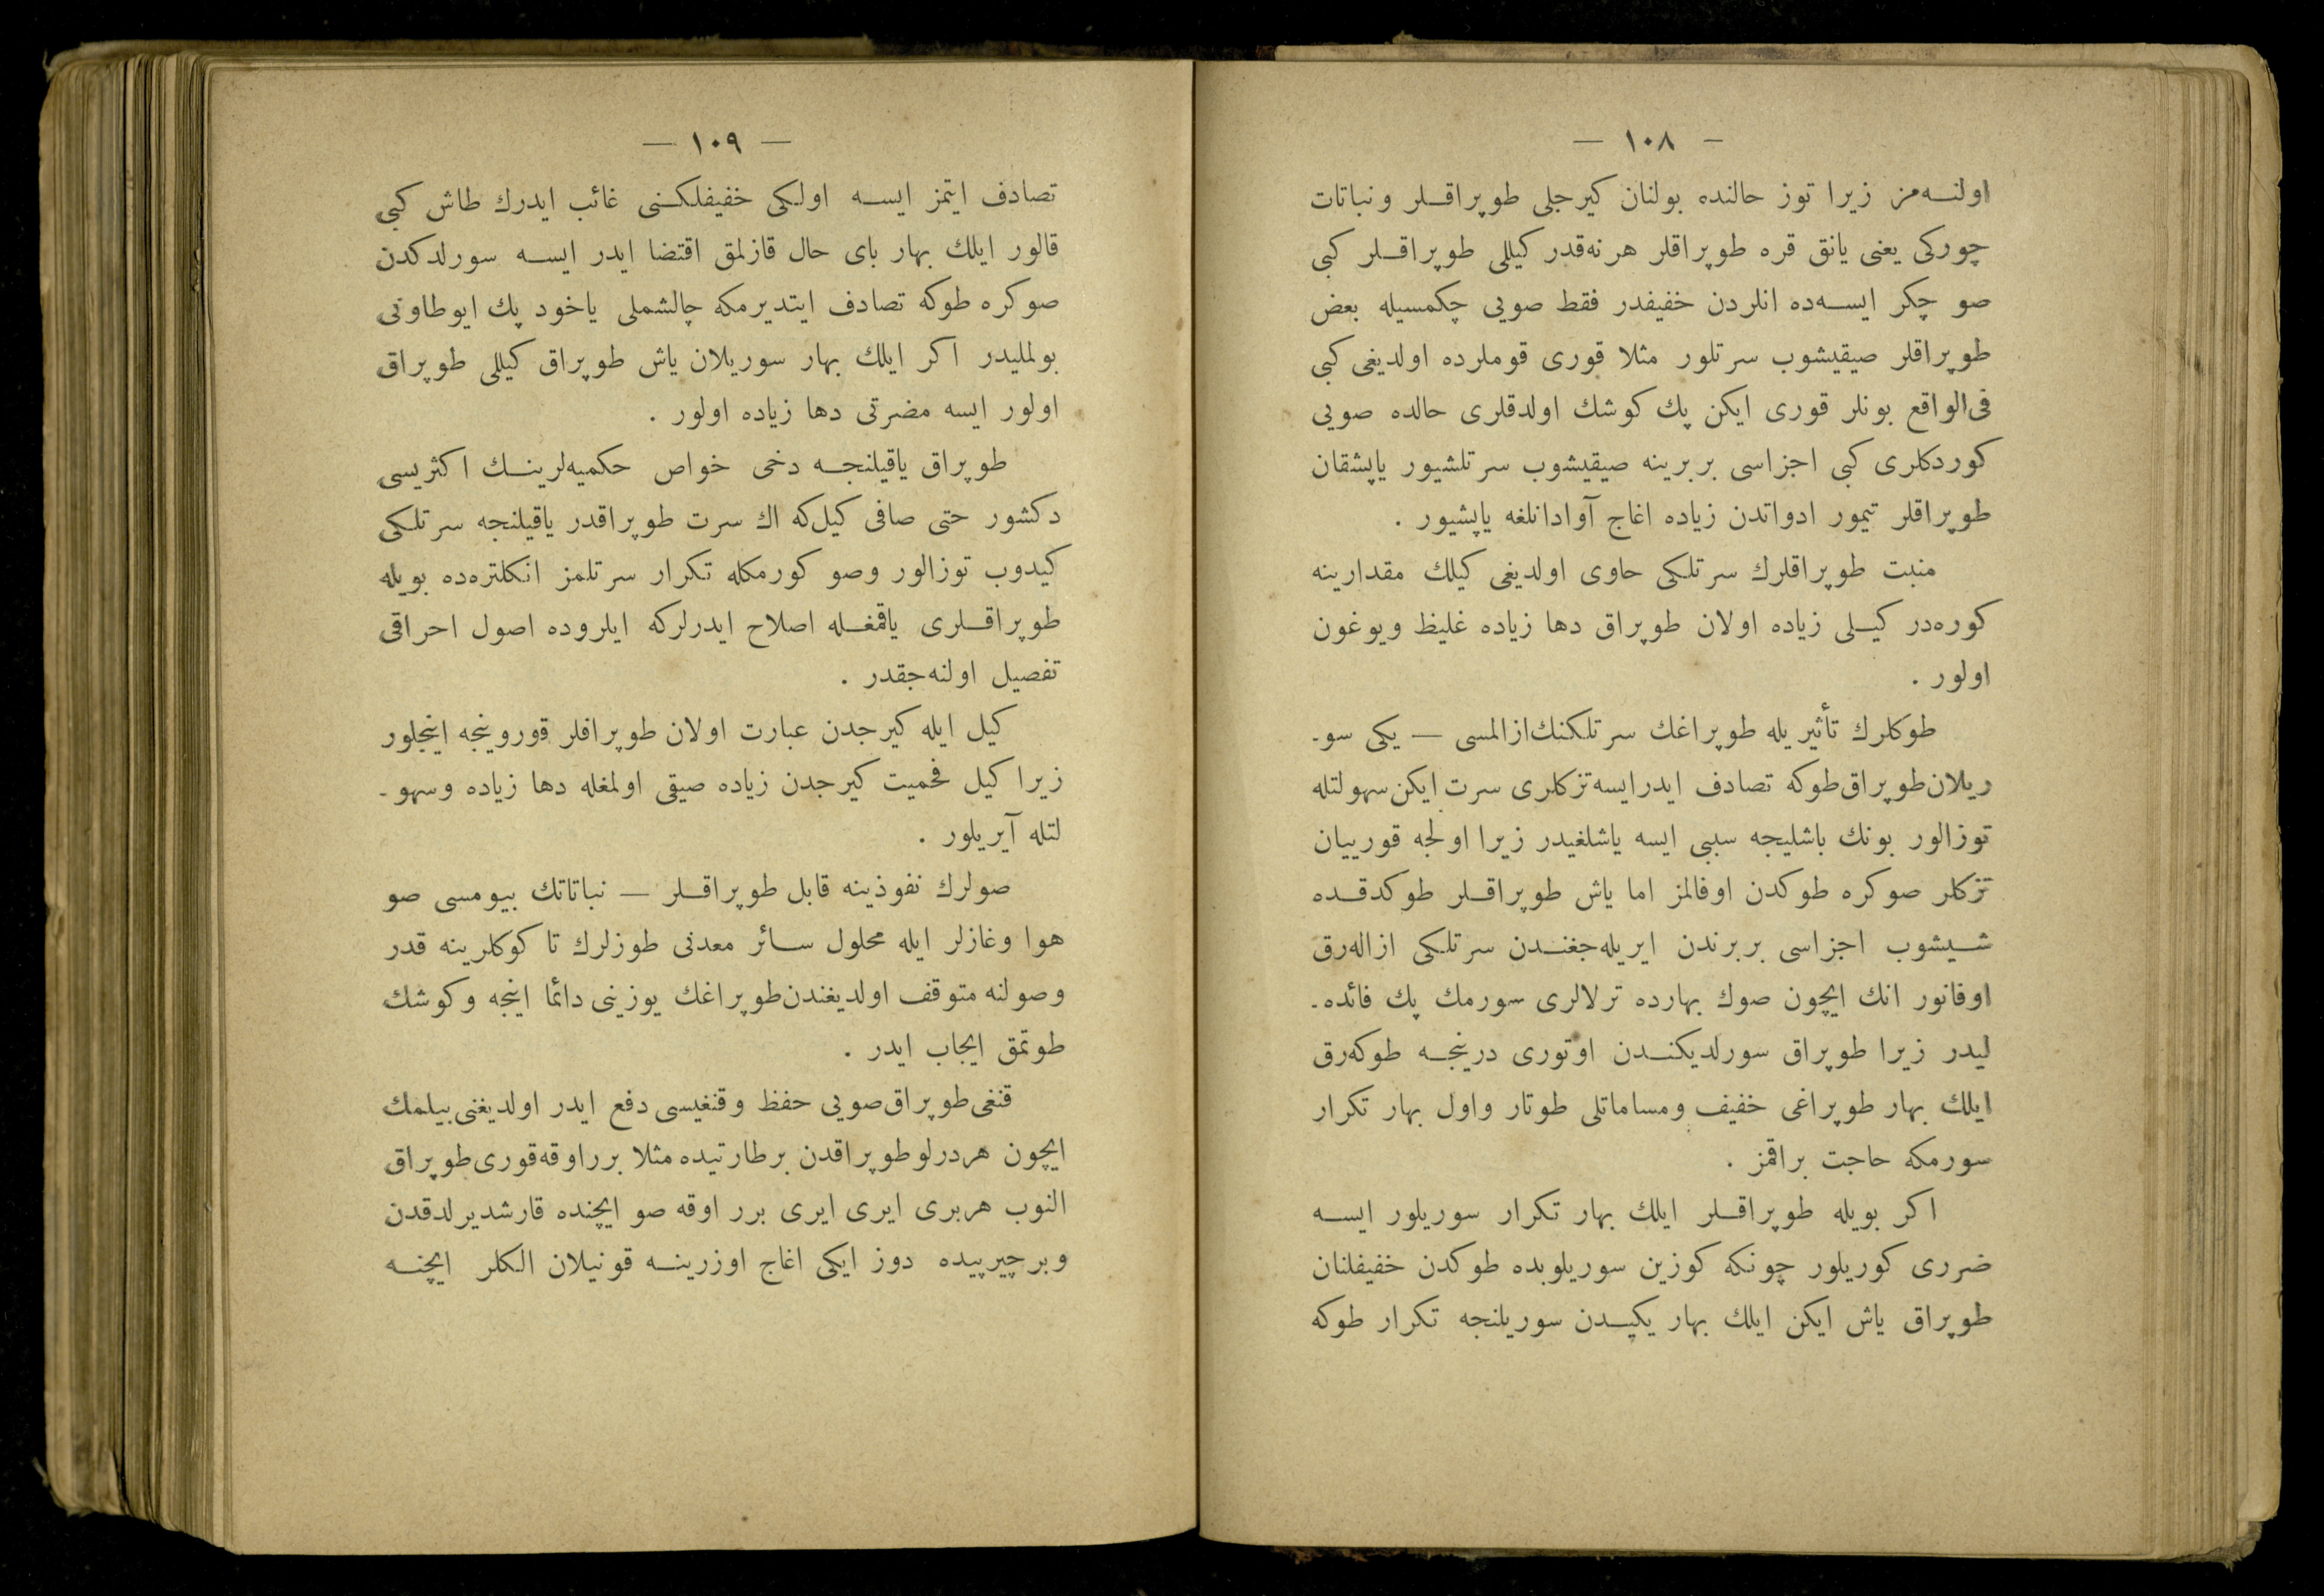 — ١٠٨ —
اولنـه‌مز زيرا توز حالنده بولنان كيرجلى طوپراقلر ونباتات
چوركى يعنى يانق قره طوپراقلر هرنه‌قدر كيللى طوپراقلر كبى
صو چكر ايسه‌ده انلردن خفيفدر فقط صويى چكمسيله بعض
طوپراقلر صيقيشوب سرتلور مثلا قورى قوملرده اولديغى كبى
فى‌الواقع بونلر قورى ايكن پك كوشك اولدقلرى حالده صويى
كوردكلرى كبى اجزاسى بربرينه صيقيشوب سرتلشيور ياپشقان
طوپراقلر تيمور ادواتدن زياده اغاج آوادانلغه ياپشيور .
منبت طوپراقلرك سرتلكى حاوى اولديغى كيلك مقدارينه
كوره‌در كيلى زياده اولان طوپراق دها زياده غليظ ويوغون
اولور .
طوكلرك تأثيريله طوپراغك سرتلكنك‌ازالمسى — يكى سو-
ريلان‌طوپراق‌طوكه تصادف ايدرايسه‌تزكلرى سرت‌ايكن‌سهولتله
توزالور بونك باشليجه سببى ايسه ياشلغيدر زيرا اولجه قورييان
تزكلر صوكره طوكدن اوفالمز اما ياش طوپراقلر طوكدقده
شيشوب اجزاسى بربرندن ايريله‌جغندن سرتلكى ازاله‌رق
اوفانور انك ايچون صوك بهارده ترلالرى سورمك پك فائده-
ليدر زيرا طوپراق سورلديكندن اوتورى درينجه طوكه‌رق
ايلك بهار طوپراغى خفيف ومساماتلى طوتار واول بهار تكرار
سورمكه حاجت براقمز .
اكر بويله طوپراقلر ايلك بهار تكرار سوريلور ايسه
ضررى كوريلور چونكه كوزين سوريلوبده طوكدن خفيفلنان
طوپراق ياش ايكن ايلك بهار يكيدن سوريلنجه تكرار طوكه
— ١٠٩ —
تصادف ايتمز ايسه اولكى خفيفلكنى غائب ايدرك طاش كبى
قالور ايلك بهار باى حال قازلمق اقتضا ايدر ايسه سورلدكدن
صوكره طوكه تصادف ايتديرمكه چالشملى ياخود پك ايوطاونى
بولمليدر اكر ايلك بهار سوريلان ياش طوپراق كيللى طوپراق
اولور ايسه مضرتى دها زياده اولور .
طوپراق ياقيلنجه دخى خواص حكميه‌لرينك اكثريسى
دكشور حتى صافى كيل‌كه اك سرت طوپراقدر ياقيلنجه سرتلكى
كيدوب توزالور وصو كورمكله تكرار سرتلمز انكلتره‌ده بويله
طوپراقلرى ياقمغله اصلاح ايدرلركه ايلروده اصول احراقى
تفصيل اولنه‌جقدر .
كيل ايله كيرجدن عبارت اولان طوپراقلر قوروينجه اينجلور
زيرا كيل فحميت كيرجدن زياده صيقى اولمغله دها زياده وسهو-
لتله آيريلور .
صولرك نفوذينه قابل طوپراقلر — نباتاتك بيومسى صو
هوا وغازلر ايله محلول سائر معدنى طوزلرك تا كوكلرينه قدر
وصولنه متوقف اولديغندن‌طوپراغك يوزينى دائما اينجه وكوشك
طوتمق ايجاب ايدر .
قنغى‌طوپراق‌صويى حفظ وقنغيسى دفع ايدر اولديغنى‌بيلمك
ايچون هردرلوطوپراقدن برطارتيده مثلا برراوقه‌قورى‌طوپراق
النوب هربرى ايرى ايرى برر اوقه صو ايچنده قارشديرلدقدن
وبرچيرپيده دوز ايكى اغاج اوزرينه قونيلان الكلر ايچنه